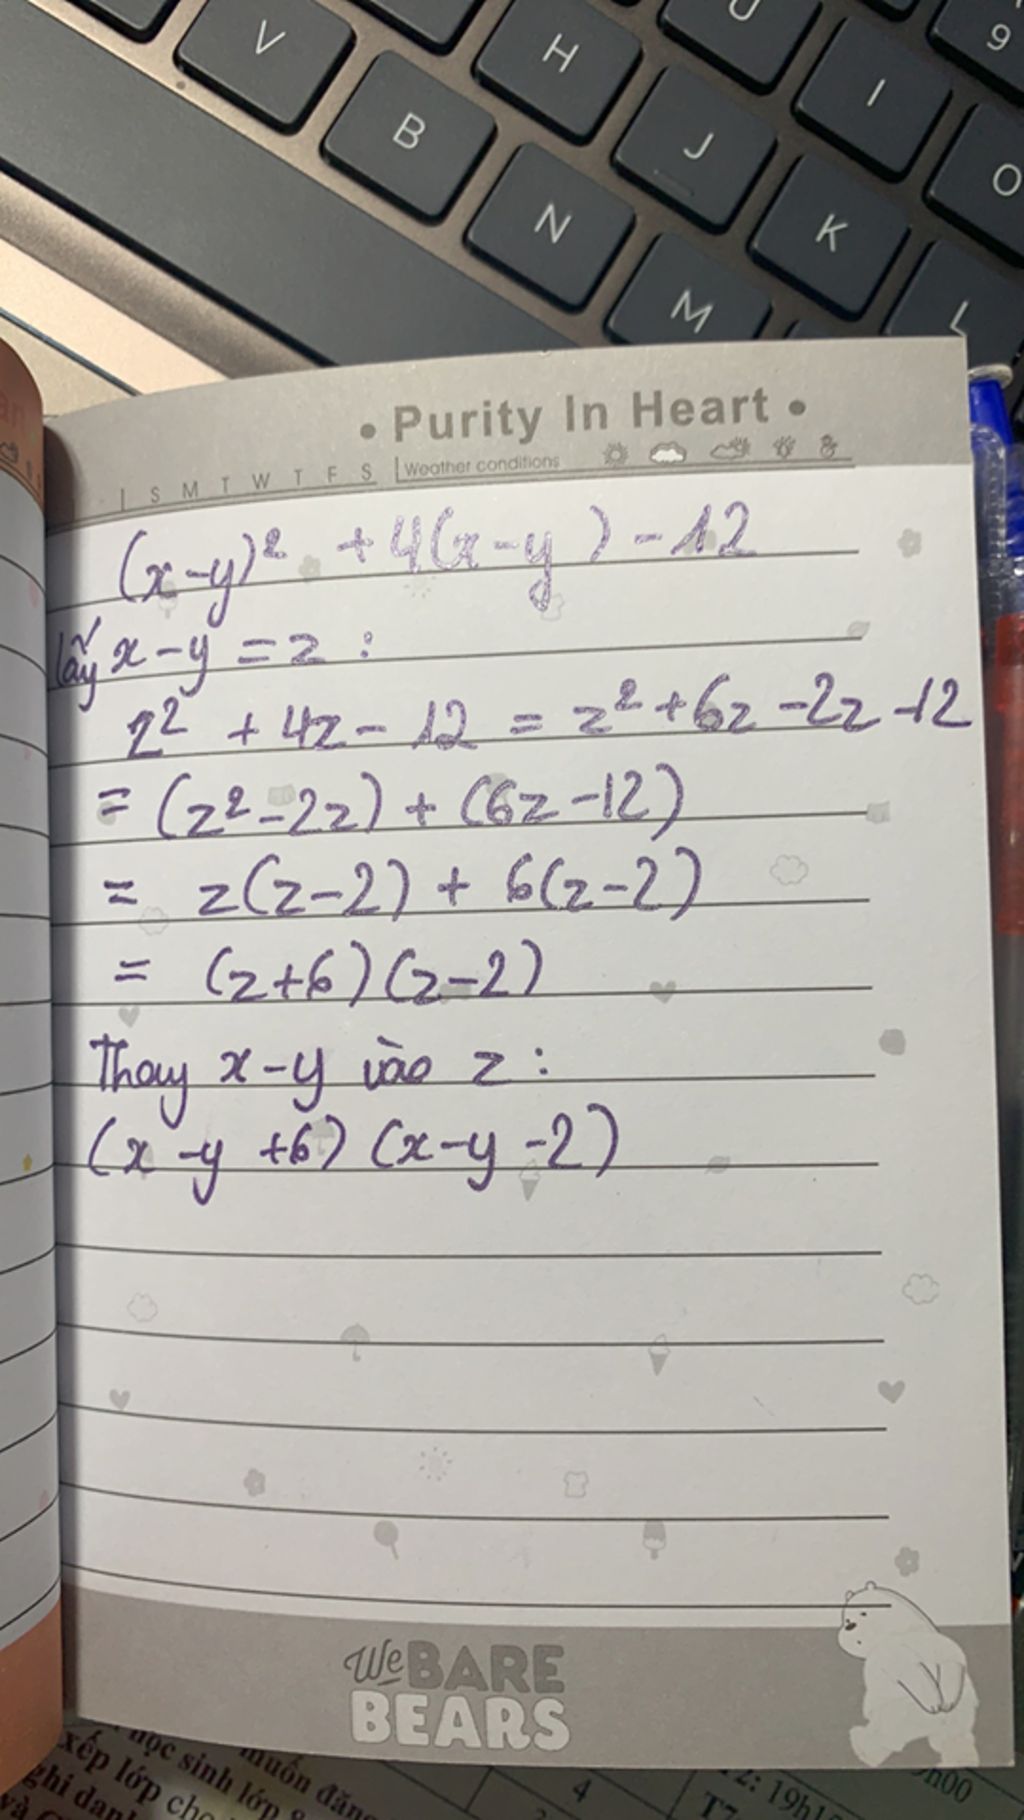 V
H
U
9
B
J
I
O
N
K
M
L
• Purity In Heart •
S M T W T F S Weather conditions
(x-y)² + 4(x-y) - 12
lấy x-y = z :
z² + 4z - 12 = z² + 6z - 2z - 12
= (z² - 2z) + (6z - 12)
= z(z-2) + 6(z-2)
= (z+6)(z-2)
Thay x-y vào z :
(x-y+6)(x-y-2)
We BARE
BEARS
học sinh lớp
muốn đăng
xếp lớp cho
ghi danh
và
4
T7